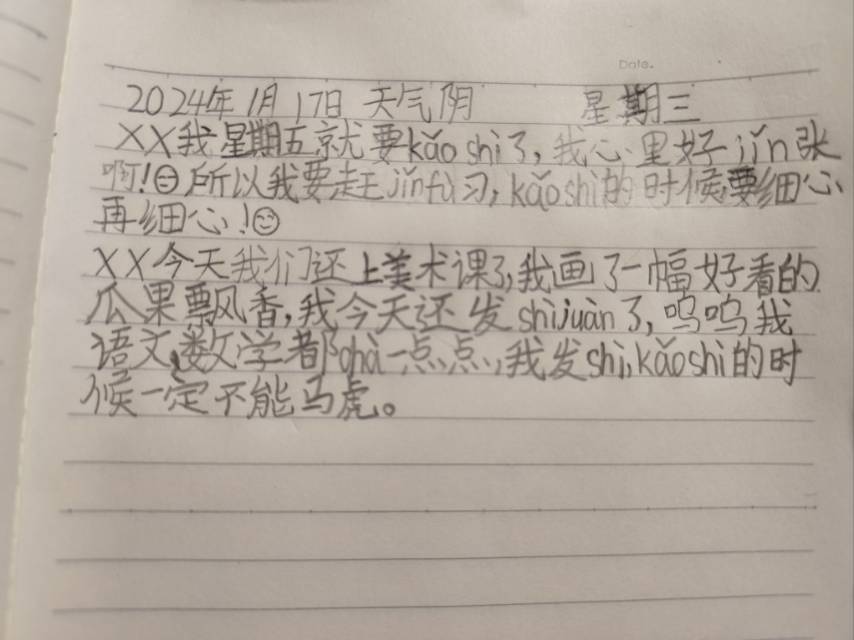 Date.
2024年1月17日 天气阴 星期三
XX我星期五就要kǎo shì了,我心里好jǐn张
啊!所以我要赶jǐnfù习,kǎoshì的时候要细心
再细心!
XX今天我们还上美术课了,我画了一幅好看的
瓜果飘香,我今天还发shìjuàn了,呜呜我
语文、数学都chà一点点,我发shì,kǎoshì的时
候一定不能马虎。